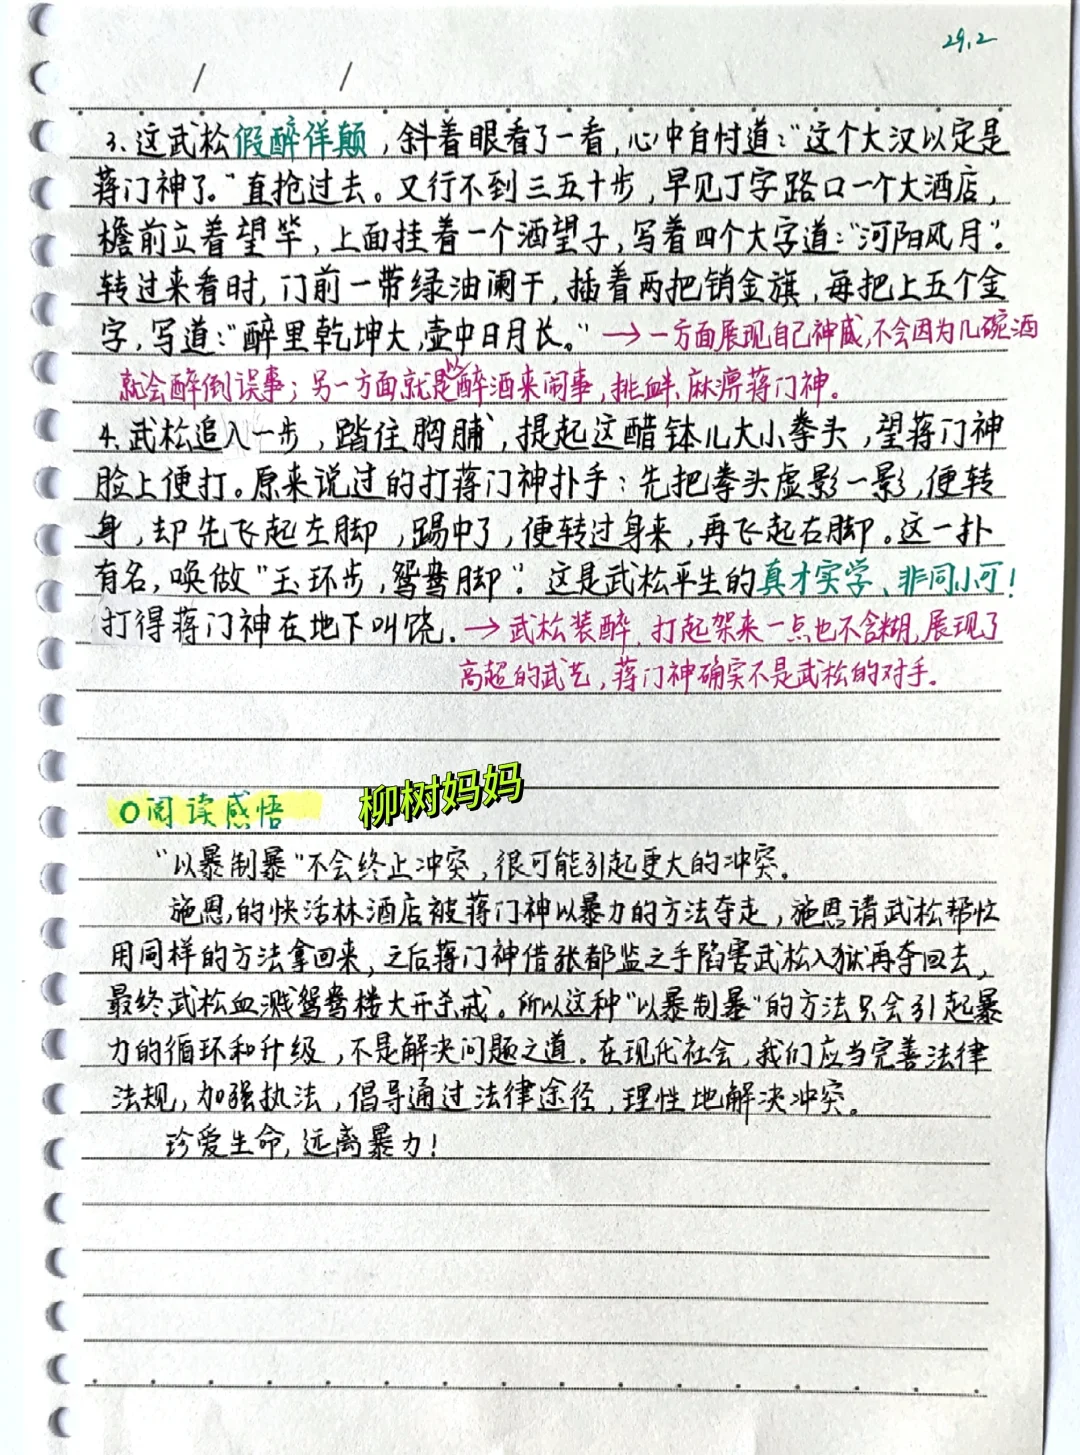 29.2
3、这武松假醉佯颠，斜着眼看了一看，心中自忖道：“这个大汉以定是
蒋门神了。”直抢过去。又行不到三五十步，早见丁字路口一个大酒店，
檐前立着望竿，上面挂着一个酒望子，写着四个大字道：“河阳风月”。
转过来看时，门前一带绿油阑干，插着两把销金旗，每把上五个金
字，写道：“醉里乾坤大，壶中日月长。”→一方面展现自己神威，不会因为几碗酒
就会醉倒误事；另一方面就是以醉酒来闹事，挑衅、麻痹蒋门神。
4、武松追入一步，踏住胸脯，提起这醋钵儿大小拳头，望蒋门神
脸上便打。原来说过的打蒋门神扑手：先把拳头虚影一影，便转
身，却先飞起左脚，踢中了，便转过身来，再飞起右脚。这一扑
有名，唤做“玉环步，鸳鸯脚”。这是武松平生的真才实学、非同小可！
打得蒋门神在地下叫饶。→武松装醉，打起架来一点也不含糊，展现了
高超的武艺，蒋门神确实不是武松的对手。
○阅读感悟
柳树妈妈
“以暴制暴”不会终止冲突，很可能引起更大的冲突。
施恩的快活林酒店被蒋门神以暴力的方法夺走，施恩请武松帮忙
用同样的方法拿回来，之后蒋门神借张都监之手陷害武松入狱再夺回去，
最终武松血溅鸳鸯楼大开杀戒。所以这种“以暴制暴”的方法只会引起暴
力的循环和升级，不是解决问题之道。在现代社会，我们应当完善法律
法规，加强执法，倡导通过法律途径，理性地解决冲突。
珍爱生命，远离暴力！